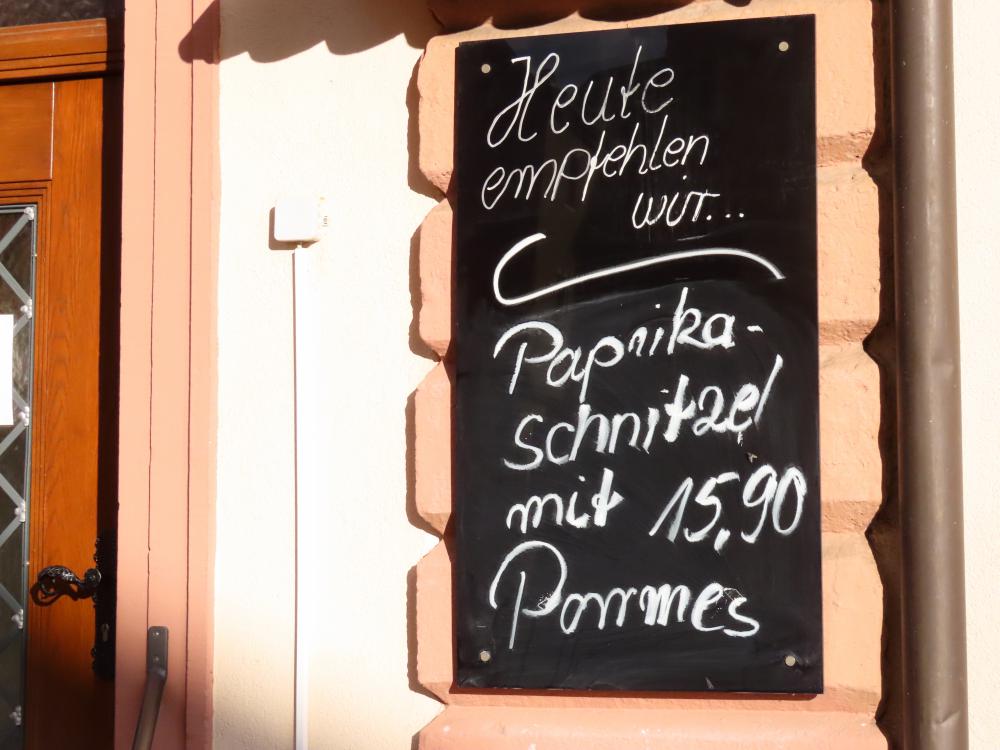 Heute
empfehlen
wir...
Paprika-
schnitzel
mit 15,90
Pommes